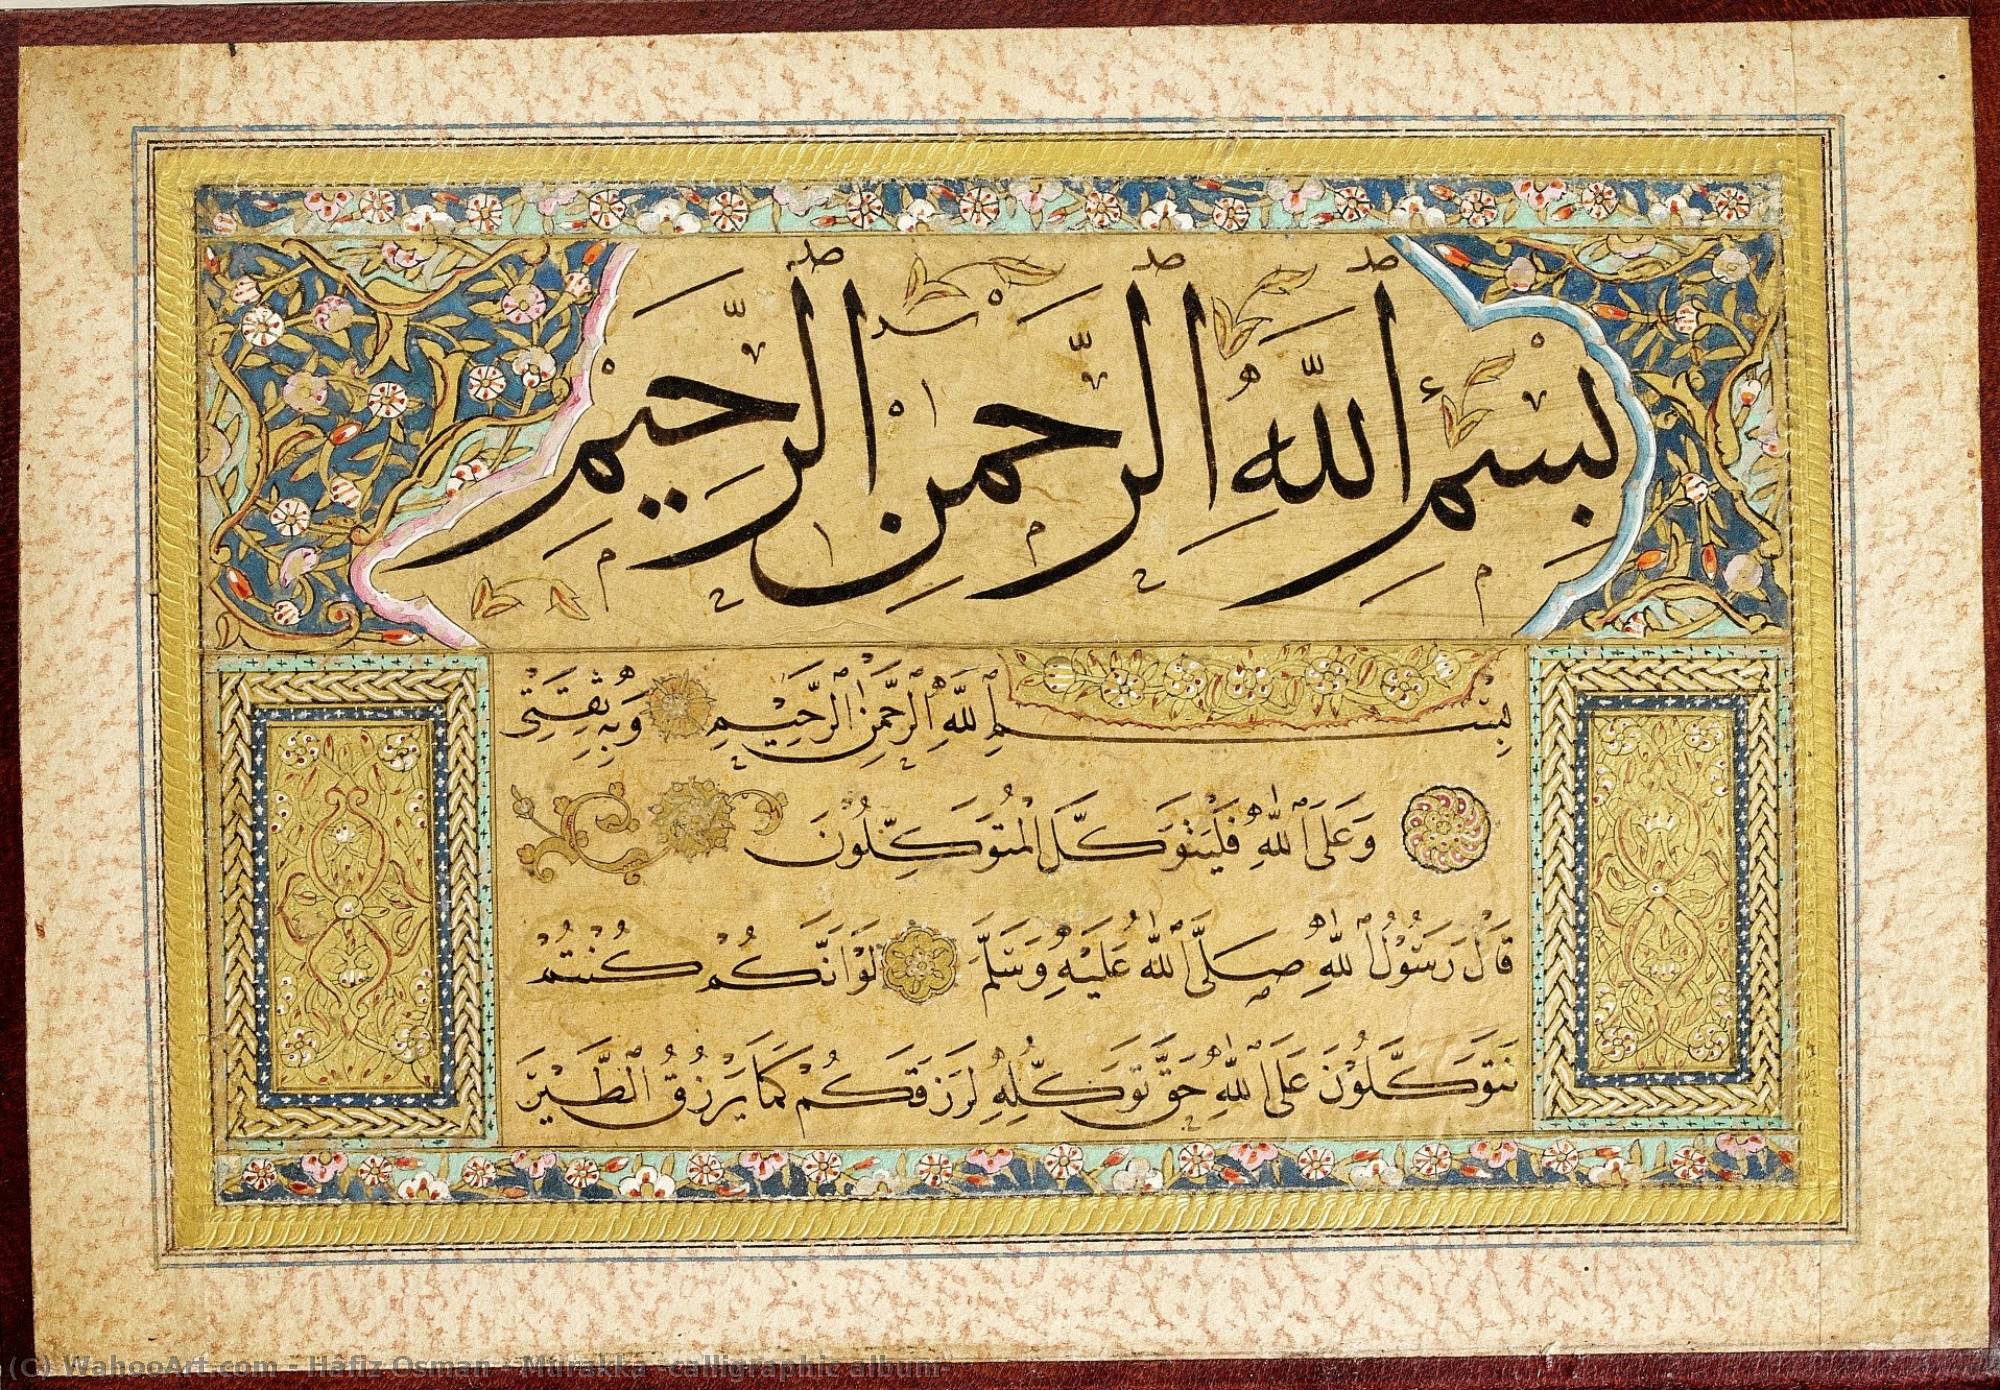 بِسْمِ اللّٰهِ الرَّحْمٰنِ الرَّحِيمِ
بِسْمِ اللّٰهِ الرَّحْمٰنِ الرَّحِيْمِ وَبِهِ ثِقَتِيْ
وَعَلَى اللّٰهِ فَلْيَتَوَكَّلِ الْمُتَوَكِّلُوْنَ
قَالَ رَسُوْلُ اللّٰهِ صَلَّى اللّٰهُ عَلَيْهِ وَسَلَّمَ لَوْ اَنَّكُمْ كُنْتُمْ
تَتَوَكَّلُوْنَ عَلَى اللّٰهِ حَقَّ تَوَكُّلِهِ لَرَزَقَكُمْ كَمَا يَرْزُقُ الطَّيْرَ
(C) WahooArt.com - Hafiz Osman - Murakka -calligraphic album-